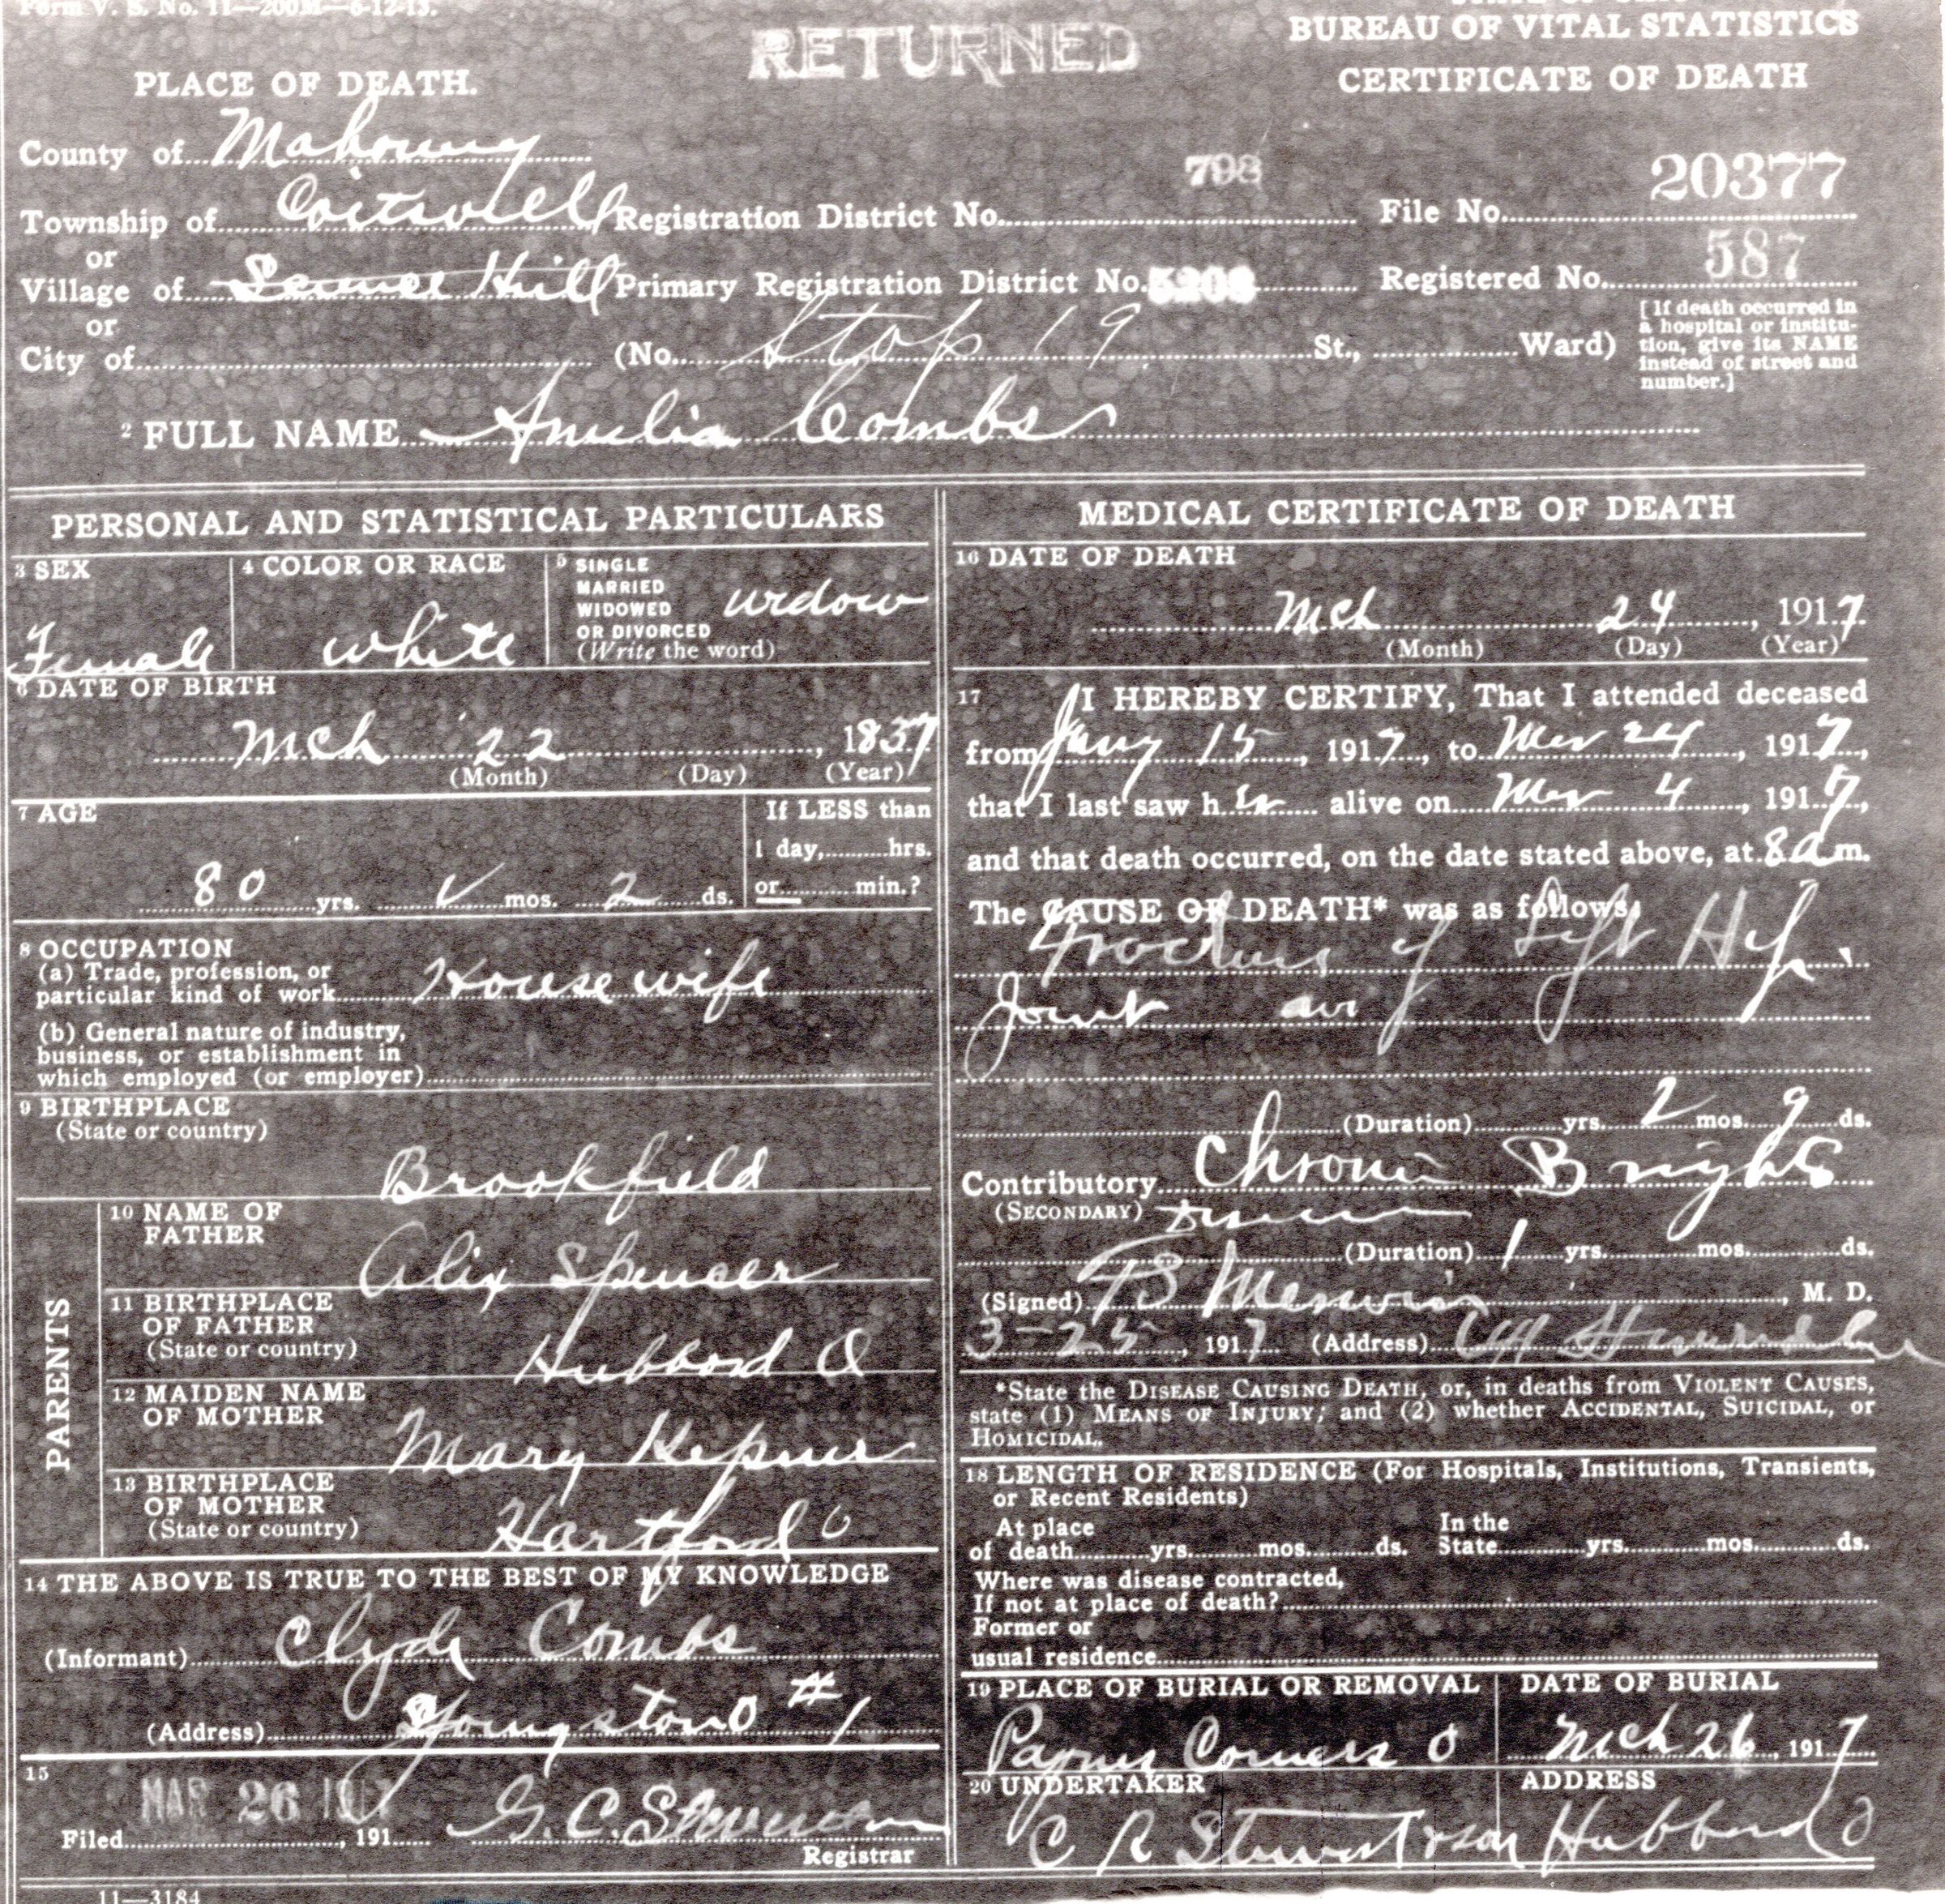 Form V. S. No. 11—200M—6-12-13.
BUREAU OF VITAL STATISTICS
RETURNED
CERTIFICATE OF DEATH
PLACE OF DEATH.
County of Mahoning
798
20377
Township of Coitsville Registration District No. File No.
or
587
Village of Hill Primary Registration District No. 5208 Registered No.
or
[If death occurred in a hospital or institution, give its NAME instead of street and number.]
City of (No. Stop 19 St., Ward)
2 FULL NAME Amelia Combs
PERSONAL AND STATISTICAL PARTICULARS
3 SEX
Female
4 COLOR OR RACE
white
5 SINGLE
MARRIED
WIDOWED
OR DIVORCED
(Write the word)
widow
6 DATE OF BIRTH
Mch 22, 1837
(Month) (Day) (Year)
7 AGE
If LESS than
1 day, hrs.
80 yrs. ✓ mos. 2 ds. or min.?
8 OCCUPATION
(a) Trade, profession, or
particular kind of work Housewife
(b) General nature of industry,
business, or establishment in
which employed (or employer)
9 BIRTHPLACE
(State or country)
Brookfield
PARENTS
10 NAME OF
FATHER
Alix Spencer
11 BIRTHPLACE
OF FATHER
(State or country)
Hubbard O
12 MAIDEN NAME
OF MOTHER
Mary Kepner
13 BIRTHPLACE
OF MOTHER
(State or country)
Hartford O
14 THE ABOVE IS TRUE TO THE BEST OF MY KNOWLEDGE
(Informant) Clyde Combs
(Address) Youngston O #1
15
MAR 26 1917
Filed, 191 G. C. Stevenson
Registrar
11—3184
MEDICAL CERTIFICATE OF DEATH
16 DATE OF DEATH
Mch 24, 1917
(Month) (Day) (Year)
17 I HEREBY CERTIFY, That I attended deceased
from Jany 15, 1917, to Mar 24, 1917,
that I last saw her alive on Mar 4, 1917,
and that death occurred, on the date stated above, at 8 a m.
The CAUSE OF DEATH* was as follows:
Fracture of Left Hip
Joint
(Duration) yrs. 2 mos. 9 ds.
Contributory Chronic Brights
(SECONDARY) Disease
(Duration) 1 yrs. mos. ds.
(Signed) M. D.
3-25, 1917 (Address)
*State the DISEASE CAUSING DEATH, or, in deaths from VIOLENT CAUSES,
state (1) MEANS OF INJURY; and (2) whether ACCIDENTAL, SUICIDAL, or
HOMICIDAL.
18 LENGTH OF RESIDENCE (For Hospitals, Institutions, Transients,
or Recent Residents)
At place In the
of death yrs. mos. ds. State yrs. mos. ds.
Where was disease contracted,
If not at place of death?
Former or
usual residence
19 PLACE OF BURIAL OR REMOVAL
Paynes Corners O
DATE OF BURIAL
Mch 26, 1917
20 UNDERTAKER
C R Stewart & son
ADDRESS
Hubbard O